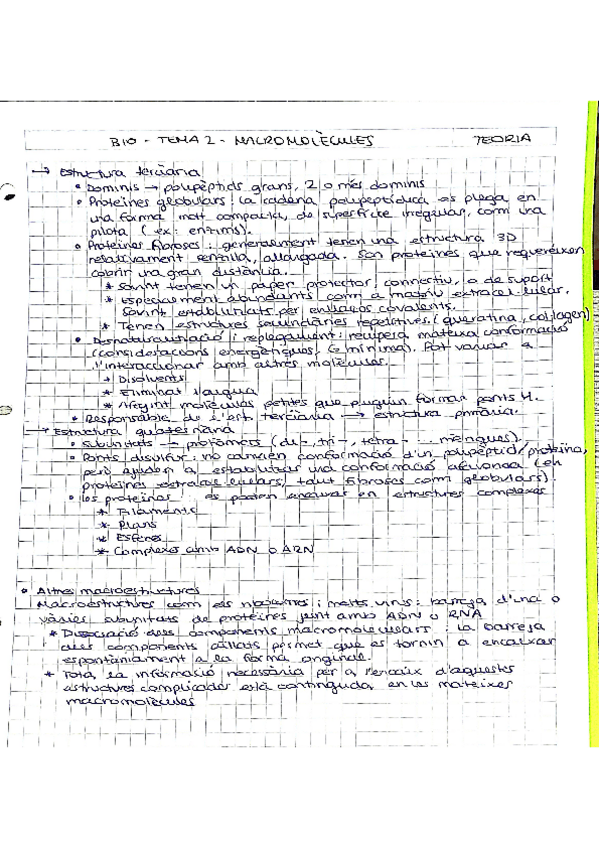 BIO - TEMA 2 - MACROMOLÈCULES TEORIA
→ Estructura terciària
• Dominis → polipèptids grans, 2 o més dominis
• Proteïnes globulars: la cadena polipeptídica es plega en
una forma molt compacta, de superfície irregular, com una
pilota (ex: enzims).
• Proteïnes fibroses: generalment tenen una estructura 3D
relativament senzilla, allargada. Són proteïnes que requereixen
cobrir una gran distància.
* Sovint tenen un paper protector, connectiu, o de suport
* Especialment abundants com a matriu extracel·lular.
Sovint estabilitzats per enllaços covalents.
* Tenen estructures secundàries repetitives. (queratina, col·lagen)
• Desnaturalització i replegament: recupera mateixa conformació
(consideracions energètiques, G mínima). Pot variar a
l'interaccionar amb altres molècules.
* Dissolvents
* Eliminat l'aigua
* Afegint molècules petites que puguin formar ponts H.
* Responsable de l'est. terciària → estructura primària.
→ Estructura quaternària
• Subunitats → protòmers (di-, tri-, tetra- ... mèriques).
• Ponts disulfur: no canvien conformació d'un polipèptid/proteïna,
però ajuden a estabilitzar una conformació afavorida (en
proteïnes extracel·lulars, tant fibroses com globulars)
• Les proteïnes es poden en estructures complexes
* Filaments
* Plans
* Esferes
* Complexes amb ADN o ARN
• Altres macroestructures
Macroestructures com els ribosomes i molts virus: barreja d'una o
vàries subunitats de proteïnes junt amb ADN o RNA
* Dissociació dels components macromoleculars: la barreja
dels components aïllats permet que es tornin a encaixar
espontàniament a la forma original.
* Tota la informació necessària per a l'encaix d'aquestes
estructures complicades està continguda en les mateixes
macromolècules